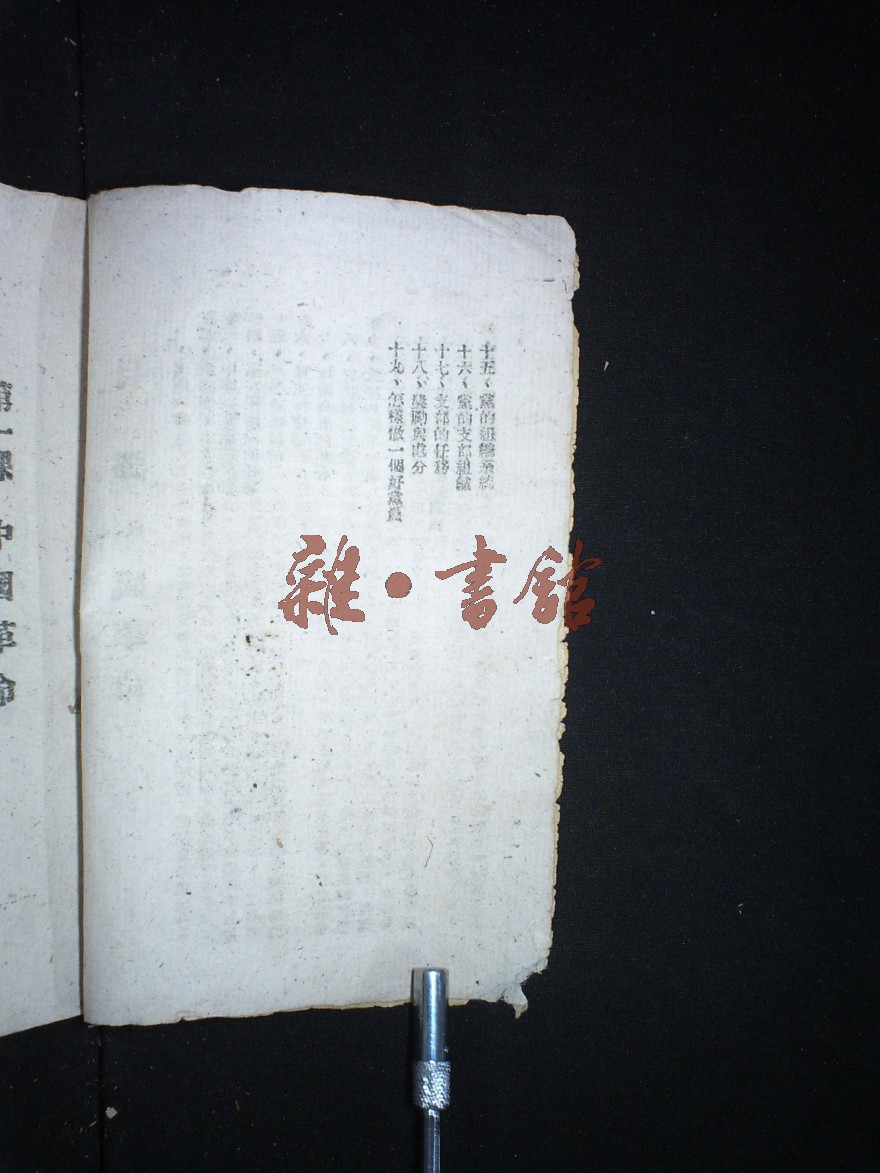 十五、黨的組織系統
十六、黨的支部組織
十七、支部的任務
十八、獎勵與處分
十九、怎樣做一個好黨員
雜·書館
第一課 中國革命